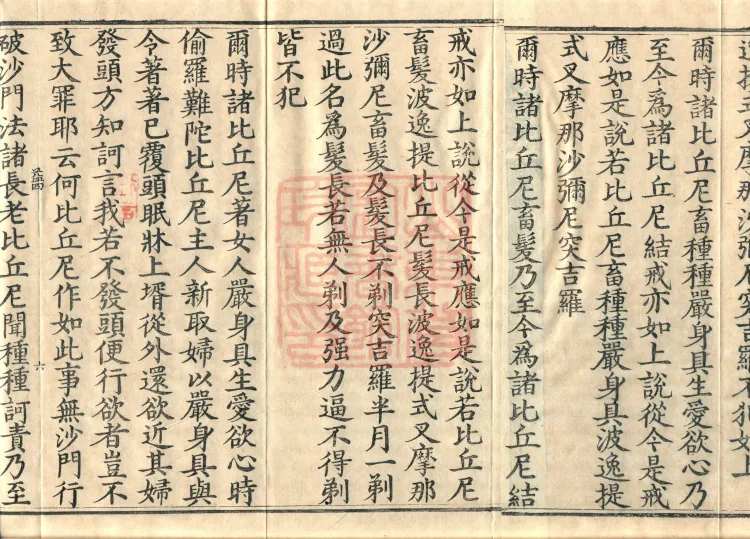 爾時諸比丘尼畜種種嚴身具生愛欲心乃
至今爲諸比丘尼結戒亦如上說從今是戒
應如是說若比丘尼畜種種嚴身具波逸提
式叉摩那沙彌尼突吉羅
爾時諸比丘尼畜髮乃至今爲諸比丘尼結
戒亦如上說從今是戒應如是說若比丘尼
畜髮波逸提比丘尼髮長波逸提式叉摩那
沙彌尼畜髮及髮長不剃突吉羅半月一剃
過此名爲髮長若無人剃及强力逼不得剃
皆不犯
爾時諸比丘尼著女人嚴身具生愛欲心時
偷羅難陀比丘尼主人新取婦以嚴身具與
令著著已覆頭眠牀上壻從外還欲近其婦
發頭方知訶言我若不發頭便行欲者豈不
致大罪耶云何比丘尼作如此事無沙門行
六
破沙門法諸長老比丘尼聞種種訶責乃至